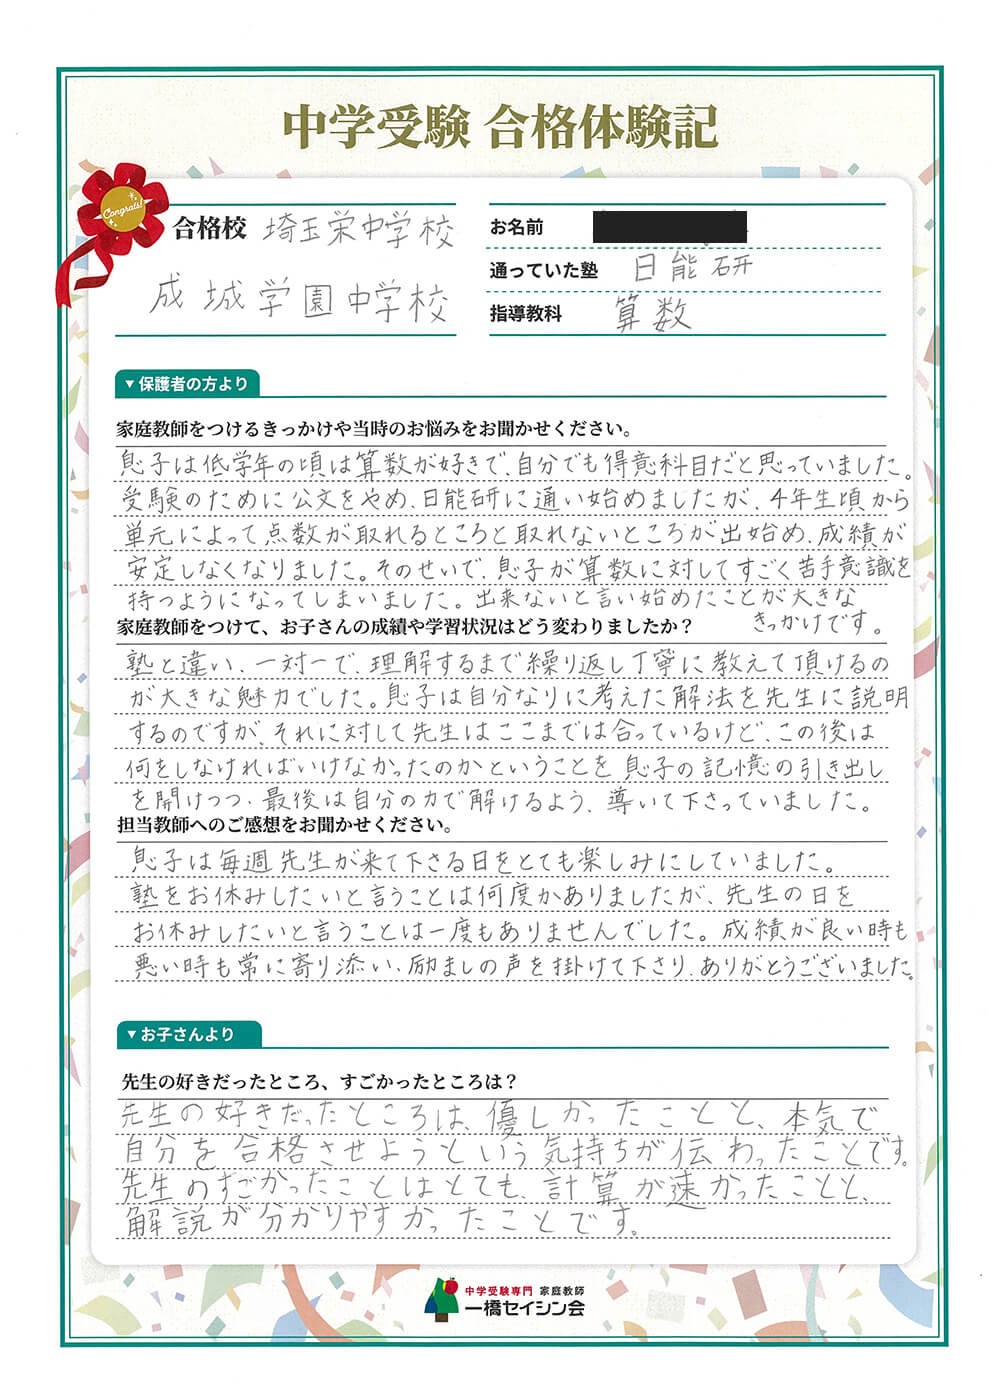 中学受験 合格体験記
Congrats!
合格校 埼玉栄中学校
成城学園中学校
お名前
通っていた塾 日能研
指導教科 算数
▼保護者の方より
家庭教師をつけるきっかけや当時のお悩みをお聞かせください。
息子は低学年の頃は算数が好きで、自分でも得意科目だと思っていました。
受験のために公文をやめ、日能研に通い始めましたが、4年生頃から
単元によって点数が取れるところと取れないところが出始め、成績が
安定しなくなりました。そのせいで、息子が算数に対してすごく苦手意識を
持つようになってしまいました。出来ないと言い始めたことが大きな
きっかけです。
家庭教師をつけて、お子さんの成績や学習状況はどう変わりましたか？
塾と違い、一対一で、理解するまで繰り返し丁寧に教えて頂けるの
が大きな魅力でした。息子は自分なりに考えた解法を先生に説明
するのですが、それに対して先生はここまでは合っているけど、この後は
何をしなければいけなかったのかということを息子の記憶の引き出し
を開けつつ、最後は自分の力で解けるよう、導いて下さっていました。
担当教師へのご感想をお聞かせください。
息子は毎週先生が来て下さる日をとても楽しみにしていました。
塾をお休みしたいと言うことは何度かありましたが、先生の日を
お休みしたいと言うことは一度もありませんでした。成績が良い時も
悪い時も常に寄り添い、励ましの声を掛けて下さり、ありがとうございました。
▼お子さんより
先生の好きだったところ、すごかったところは？
先生の好きだったところは、優しかったことと、本気で
自分を合格させようという気持ちが伝わったことです。
先生のすごかったことはとても、計算が速かったことと、
解説が分かりやすかったことです。
中学受験専門 家庭教師
一橋セイシン会